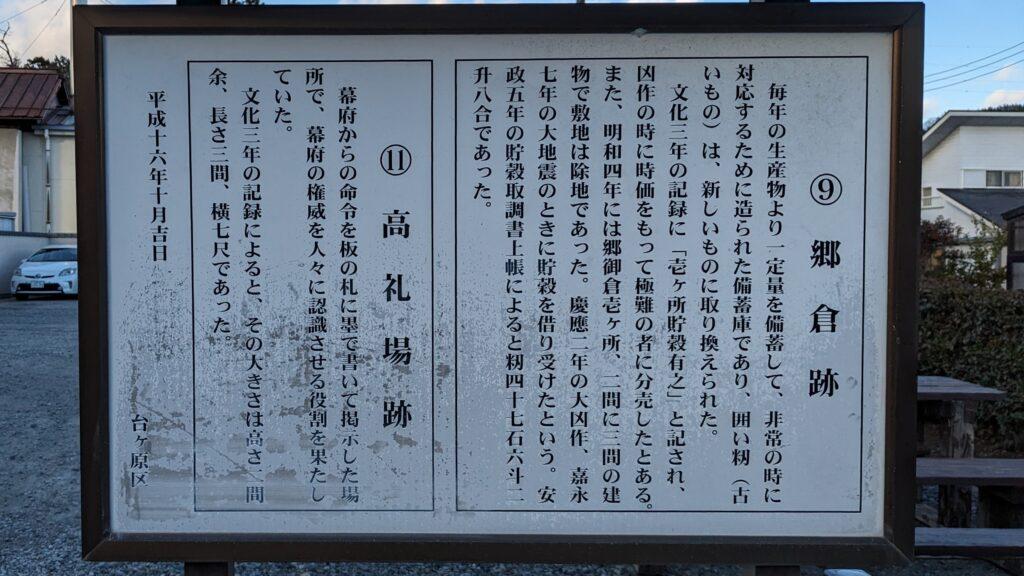 ⑨ 郷倉跡
毎年の生産物より一定量を備蓄して、非常の時に
対応するために造られた備蓄庫であり、囲い籾（古
いもの）は、新しいものに取り換えられた。
文化三年の記録に「壱ヶ所貯穀有之」と記され、
凶作の時に時価をもって極難の者に分売したとある。
また、明和四年には郷御倉壱ヶ所、二間に三間の建
物で敷地は除地であった。慶應二年の大凶作、嘉永
七年の大地震のときに貯穀を借り受けたという。安
政五年の貯穀取調書上帳によると籾四十七石六斗二
升八合であった。
⑪ 高札場跡
幕府からの命令を板の札に墨で書いて掲示した場
所で、幕府の権威を人々に認識させる役割を果たし
ていた。
文化三年の記録によると、その大きさは高さ一間
余、長さ三間、横七尺であった
平成十六年十月吉日
台ヶ原区